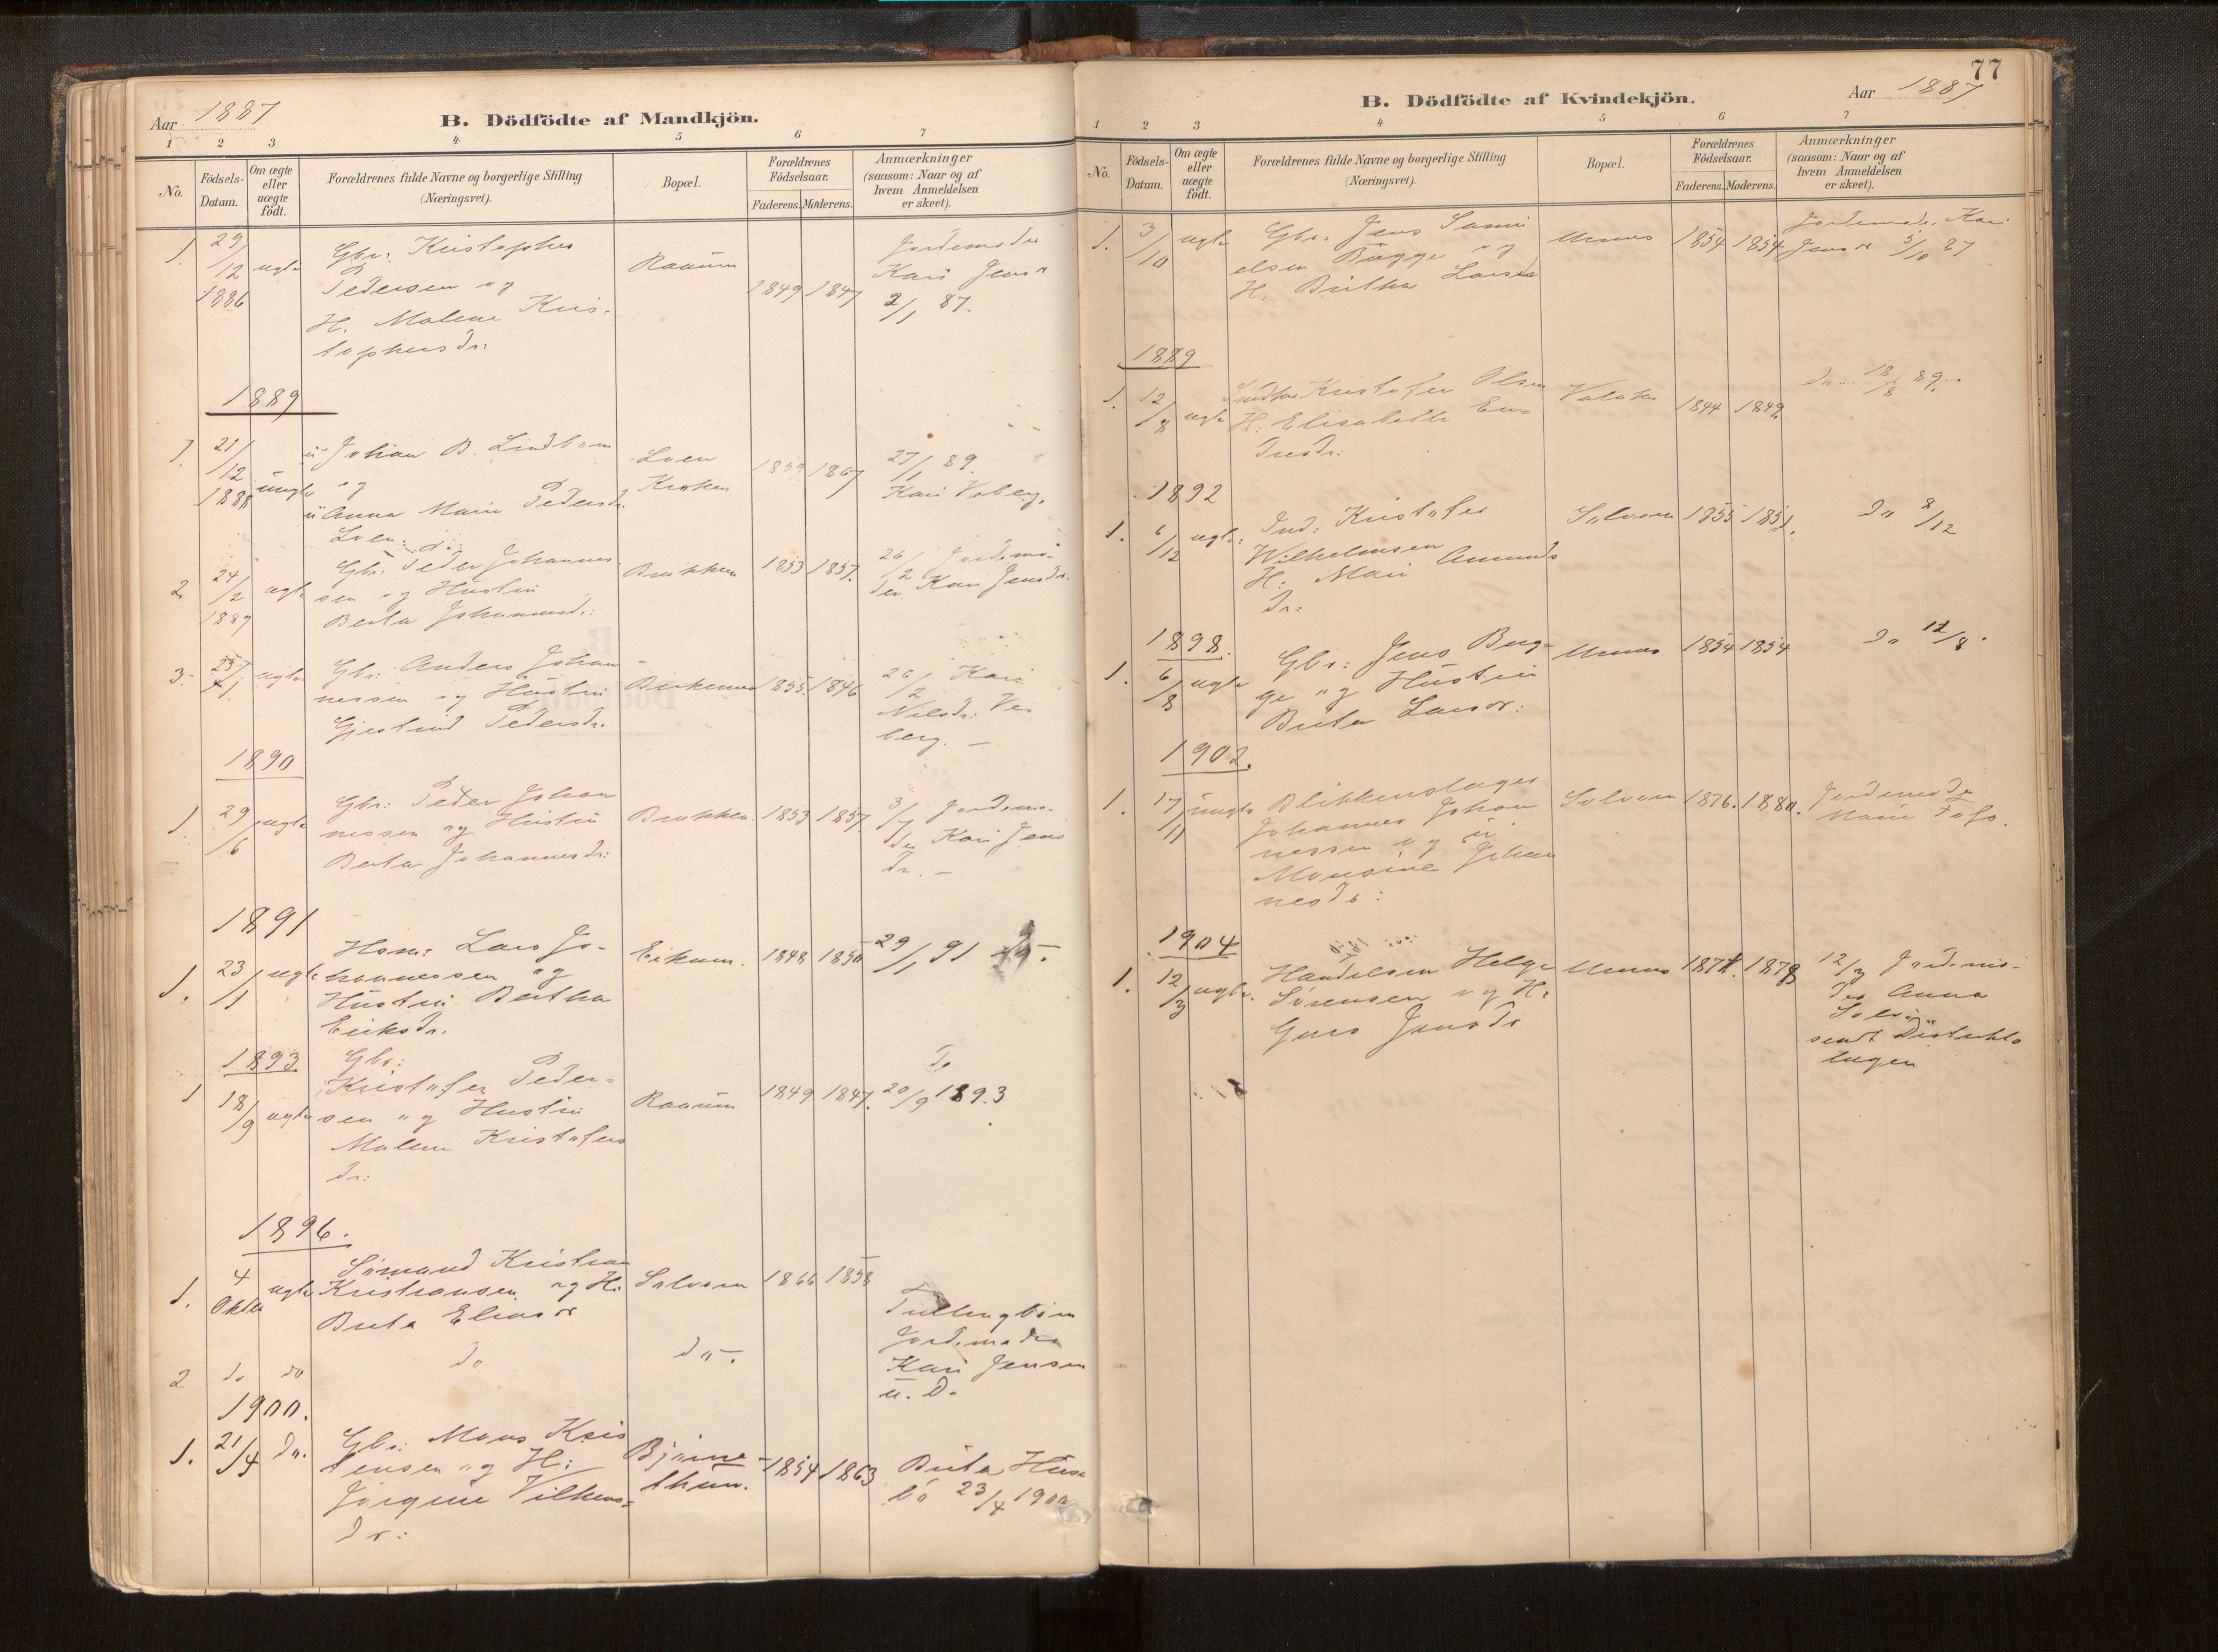 Aar 1887
B. Dödfödte af Mandkjön.
1 2 3 4 5 6 7
No.
Födsels-
Datum.
Om ægte
eller
uægte
födt.
Forældrenes fulde Navne og borgerlige Stilling
(Næringsvei).
Bopæl.
Forældrenes
Födselsaar.
Faderens. Moderens.
Anmærkninger
(saasom: Naar og af
hvem Anmeldelsen
er skeet).
1. 29/12 1886 ægte
Gbr: Kristopher
Pedersen og
H. Malene Kris-
tophersdr:
Raaum
1849 1847
Jordemoder
Kari Jens
2/1 87.
1889
1. 21/12 1888 uægte
Johan B. Lindbom
og
Anna Marie Pedersdr.
Loen
Loen
Kroken
1859 1867
27/1 89.
Kari Veberg.
2 24/2 1889 ægte
Gbr. Peder Johannes
sen og Hustru
Berta Johannesdr:
Brækken
1853 1857.
26/2 Jordemo-
der Kari Jensdr.
3. 25/1 ægte
Gbr: Anders Johan
nessen og Hustru
Gjertrud Pedersdr.
1855. 1846
26/2 Kari
Nilsdr: Ve
berg. -
1890
1 29/6 ægte
Gbr: Peder Johan
nessen og Hustru
Berta Johannesdr:
Brækken.
1853 1857
3/7 Jordemo-
der Kari Jens
dr. -
1891
1. 23/1 ægte
Hsm: Lars Jo-
hannessen og
Hustru Bertha
Eriksdr.
Eikum.
1848 1850
29/1 91
1893.
1 18/9 ægte
Gbr:
Kristofer Peder-
sen og Hustru
Malene Kristofers
dr:
Raaum
1849 1847.
Do
20/9 1893
1896.
1. 4 Oktbr ægte
Sömand Kristian
Kristiansen og H:
Brita Eliasdr
Solvorn
1866 1858
Tvillingbörn
Jordemoder
Kari Jensen
u. D.
2 do do do do.
1900.
1. 21/4 do.
Gbr: Mons Kris
tensen og H:
Jorgine Vilhems-
dr:
Bjørne-
thun.
1854 1863
Brita Huse
bö 23/4 1900
77
B. Dödfödte af Kvindekjön.
Aar 1887
1 2 3 4 5 6 7
No.
Födsels-
Datum.
Om ægte
eller
uægte
födt.
Forældrenes fulde Navne og borgerlige Stilling
(Næringsvei).
Bopæl.
Forældrenes
Födselsaar.
Faderens. Moderens.
Anmærkninger
(saasom: Naar og af
hvem Anmeldelsen
er skeet).
1. 3/10 ægte
Gbr. Jens Samu
elsen Bugge og
H. Britha Larsdr
Urnes
1854 1854
Jordemoder Kari
Jensdr 5/10 87
1889
1. 12/8 ægte
Kristofer Olsen
H. Elisabeth En-
dresdr.
1844 1849.
do 18/8 89.
1892
1. 6/12 ægte:
Ind: Kristofer
Wilhelmsen
H: Mari Amunds
dr:
Solvorn
1855 1851.
do 8/12
1898.
1. 6/8 ægte
Gbr: Jens Bug-
ge og Hustru
Brita Larsdr:
Urnes
1854 1854
do 12/8.
1902.
1. 17/11 uægte
Blikkenslager
Johannes Johan
nessen og
Monsine Johan
nesdr:
Solvorn
1876. 1880.
Jordemoder
Marie Fo
1904
1. 12/3 ægte.
Handelsm Helge
Sörensen og H.
Guro Jensdr
Urnes
1874. 1878
12/3 Jordemo-
der Anna
Solvi
samt Distrikts
lægen